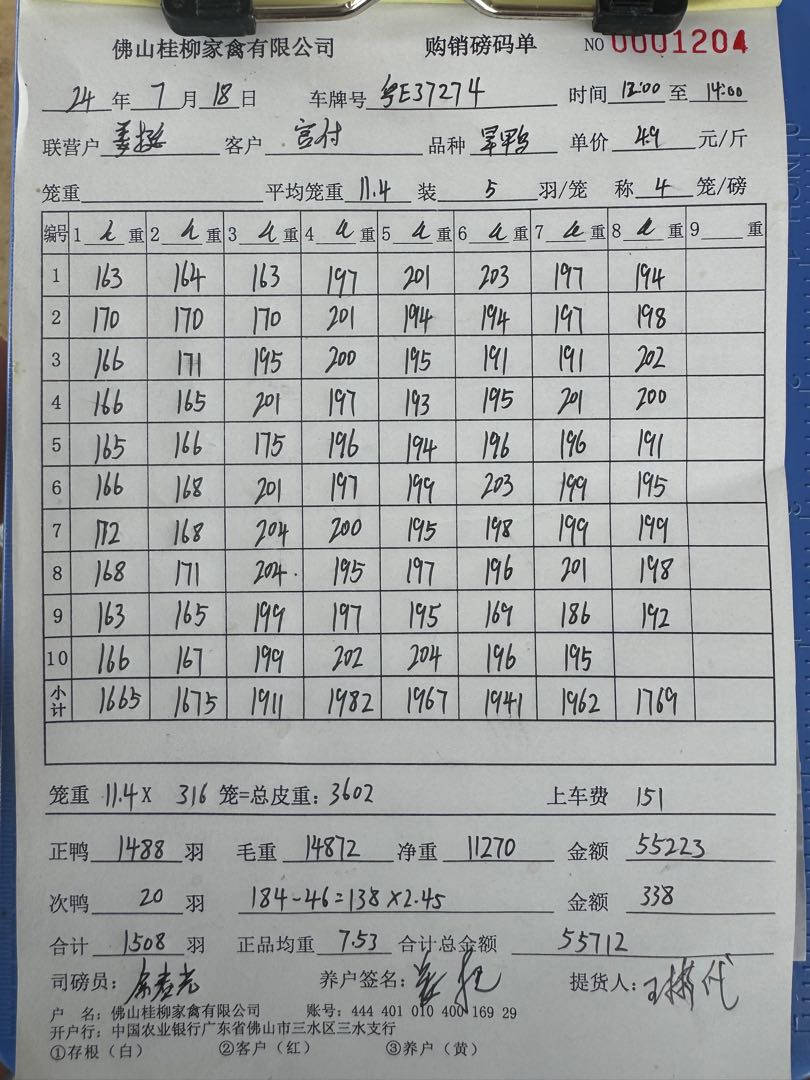 佛山桂柳家禽有限公司 购销磅码单 NO 0001204
24 年 7 月 18 日 车牌号 粤E37274 时间 12:00 至 14:00
联营户 客户 宫付 品种 旱鸭 单价 4.9 元/斤
笼重 平均笼重 11.4 装 5 羽/笼 称 4 笼/磅
编号 1 重 2 重 3 重 4 重 5 重 6 重 7 重 8 重 9 重
1 163 164 163 197 201 203 197 194
2 170 170 170 201 194 194 197 198
3 166 171 195 200 195 191 191 202
4 166 165 201 197 193 195 201 200
5 165 166 175 196 194 196 196 191
6 166 168 201 197 199 203 199 195
7 172 168 204 200 195 198 199 199
8 168 171 204 195 197 196 201 198
9 163 165 199 197 195 169 186 192
10 166 167 199 202 204 196 195
小计 1665 1675 1911 1982 1967 1941 1962 1769
笼重 11.4 X 316 笼=总皮重: 3602 上车费 151
正鸭 1488 羽 毛重 14872 净重 11270 金额 55223
次鸭 20 羽 184-46=138×2.45 金额 338
合计 1508 羽 正品均重 7.53 合计总金额 55712
司磅员: 养户签名: 提货人:
户 名: 佛山桂柳家禽有限公司 账号: 444 401 010 400 169 29
开户行: 中国农业银行广东省佛山市三水区三水支行
①存根(白) ②客户(红) ③养户(黄)